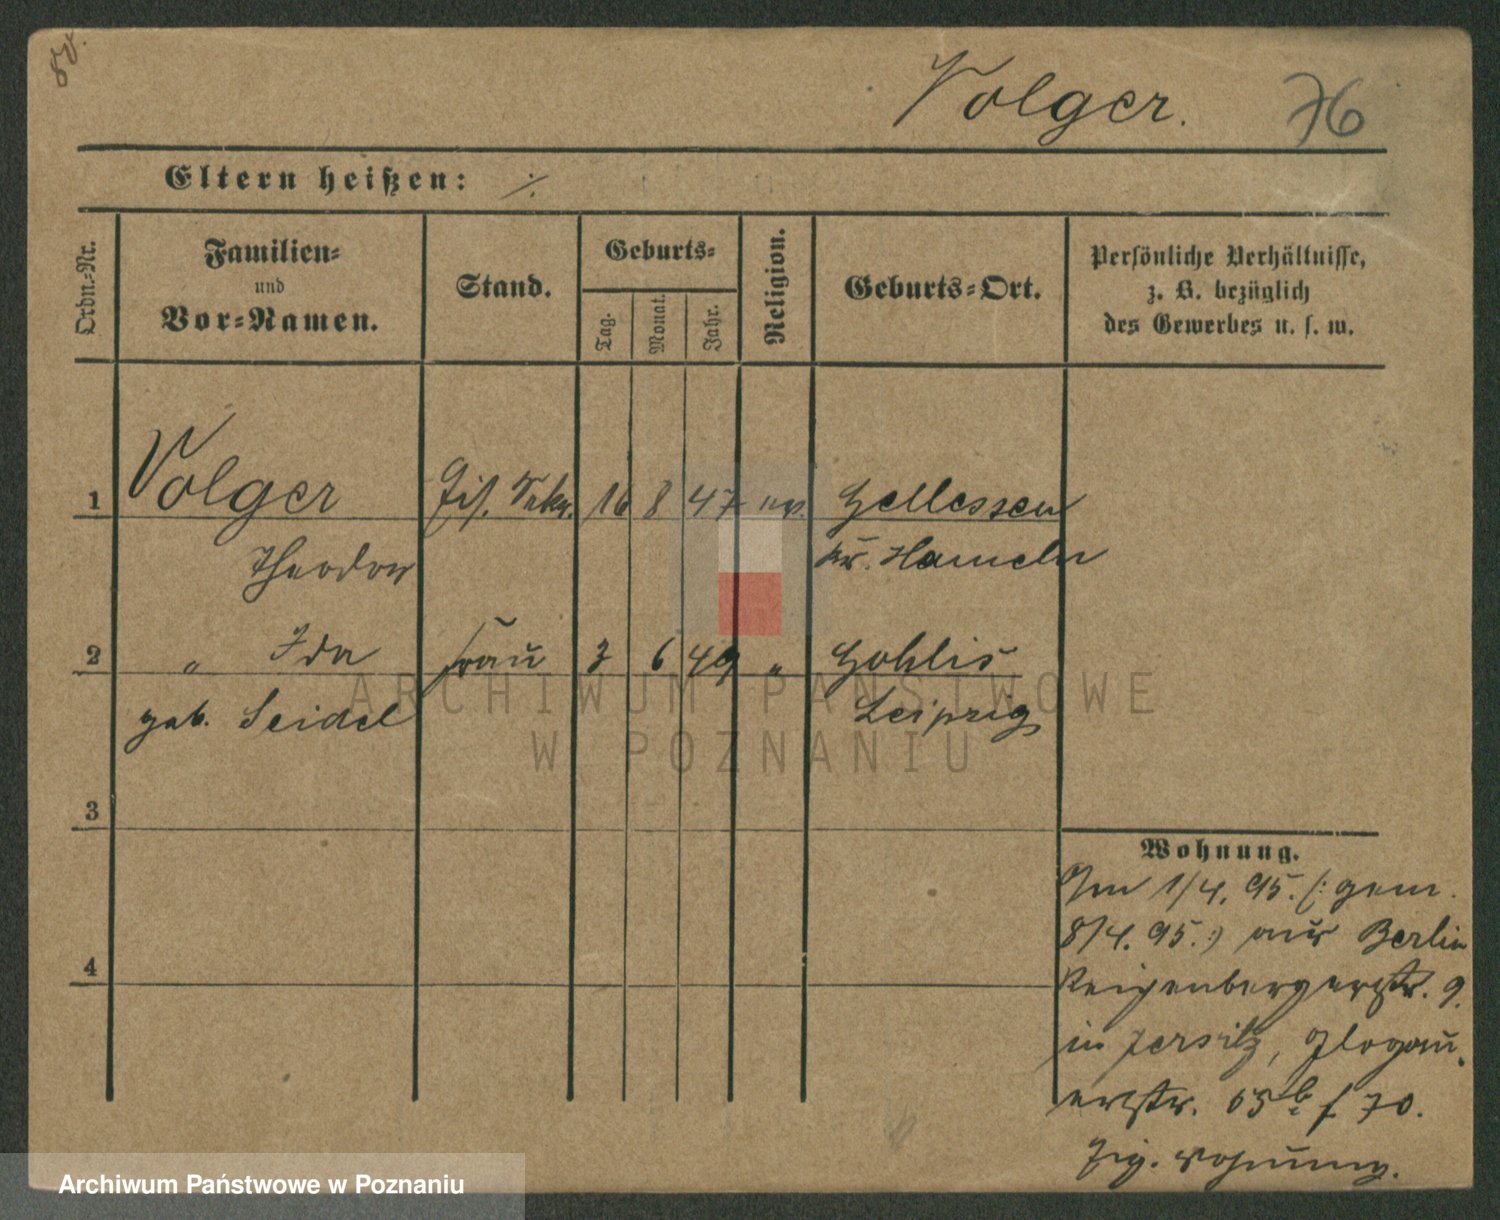 Volger. 76
Eltern heißen: ./.
Ordn.-Nr.
Familien-
und
Vor-Namen.
Stand.
Geburts-
Tag.
Monat.
Jahr.
Religion.
Geburts-Ort.
Persönliche Verhältnisse,
z. B. bezüglich
des Gewerbes u. s. w.
1 Volger 16 8 47 ev. Hellessen
Theodor Kr. Hameln
2 " Ida Frau 3 6 49 " Gohlis
geb. Seidel Leipzig
ARCHIWUM PAŃSTWOWE
W POZNANIU
3
4
Wohnung.
Am 1/4. 95. (: gem.
8/4. 95. :) aus Berlin
Reichenbergerstr. 9.
in Jersitz, Glogau-
erstr. 70.
Wohnung.
Archiwum Państwowe w Poznaniu